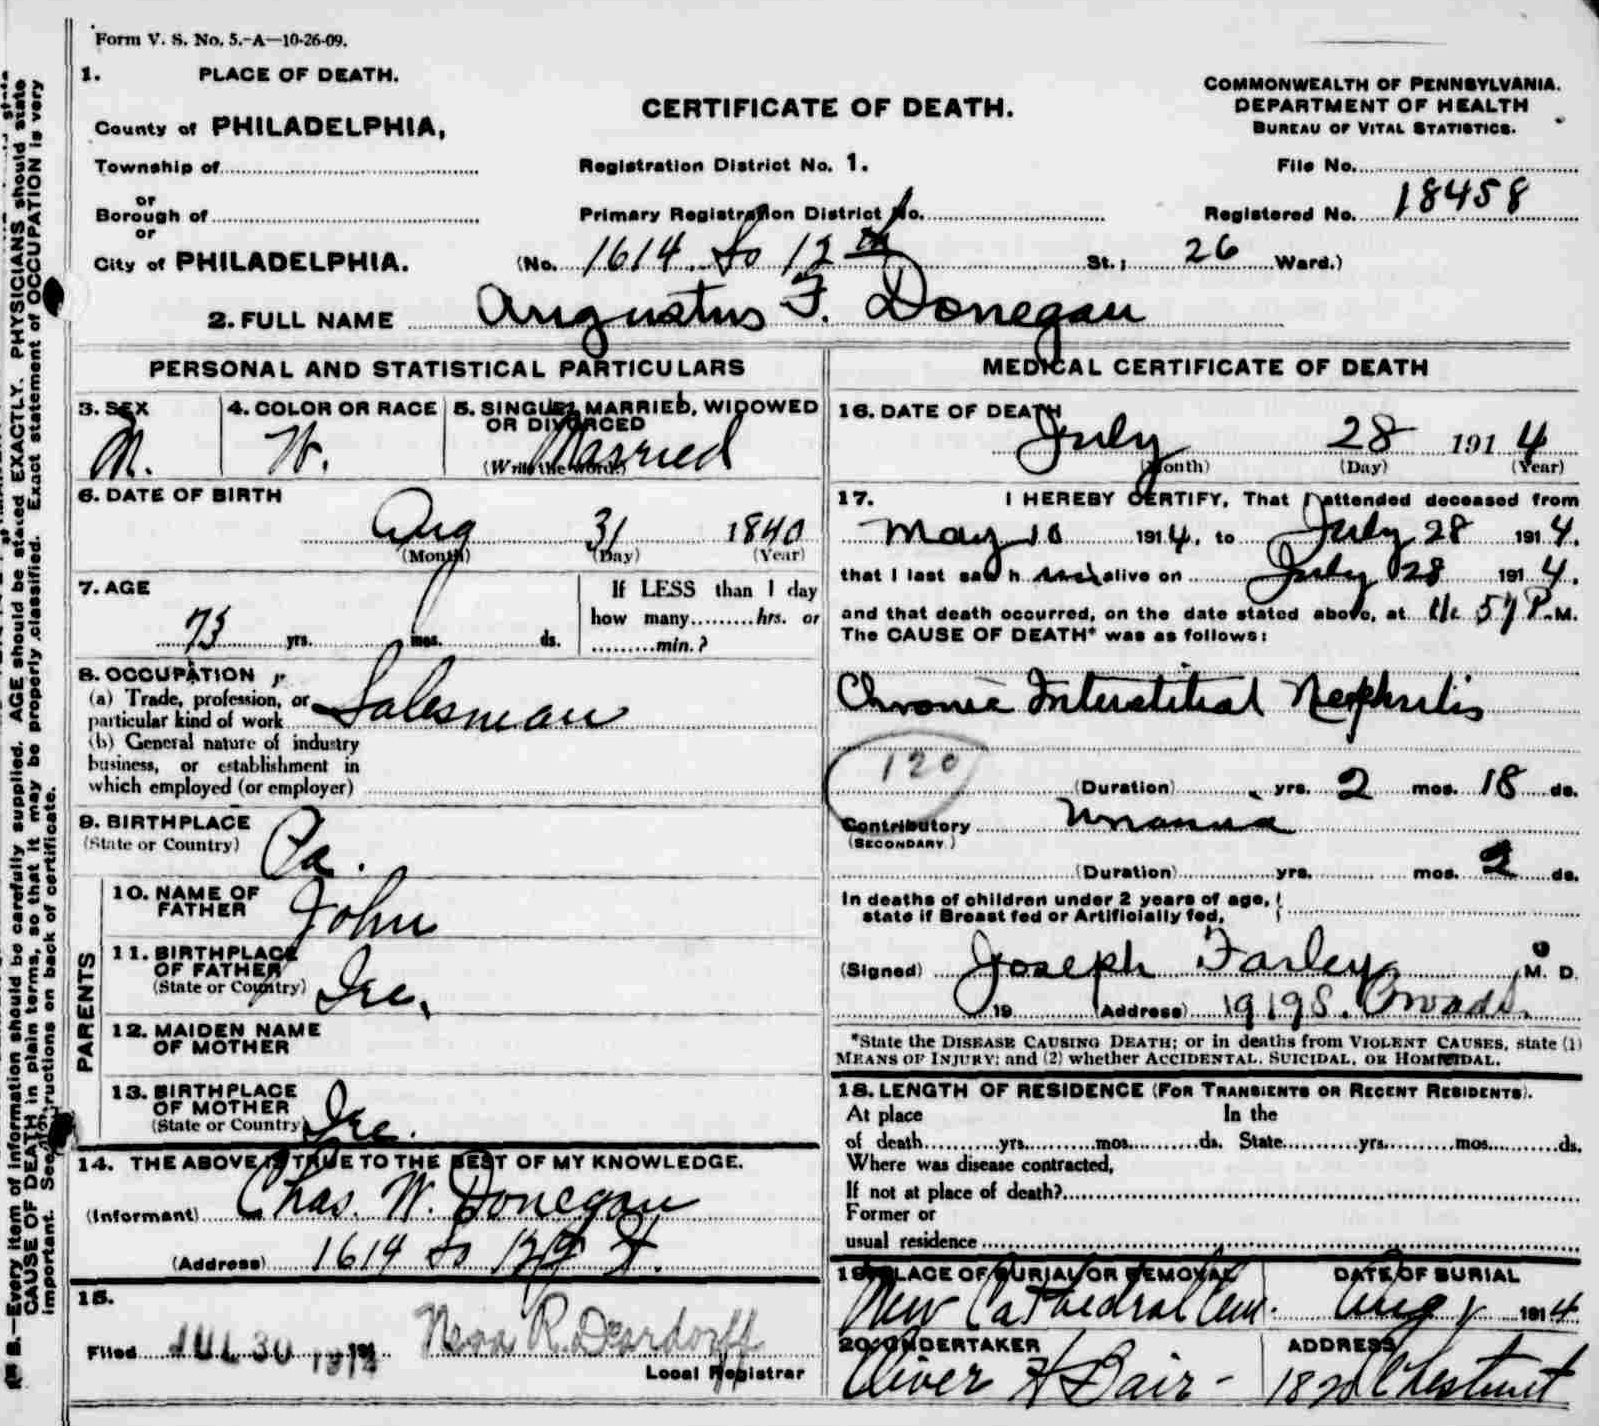 Form V. S. No. 5.-A—10-26-09.
1. PLACE OF DEATH.
County of PHILADELPHIA,
Township of
or
Borough of
or
City of PHILADELPHIA.
CERTIFICATE OF DEATH.
Registration District No. 1.
Primary Registration District No.
(No. 1614 So 12th St.; 26 Ward.)
COMMONWEALTH OF PENNSYLVANIA.
DEPARTMENT OF HEALTH
BUREAU OF VITAL STATISTICS.
File No.
Registered No. 18458
2. FULL NAME Augustus F. Donegan
PERSONAL AND STATISTICAL PARTICULARS
3. SEX
M.
4. COLOR OR RACE
W.
5. SINGLE, MARRIED, WIDOWED
OR DIVORCED
(Write the word.)
Married
6. DATE OF BIRTH
Aug 31 1840
(Month) (Day) (Year)
7. AGE
73 yrs. mos. ds.
If LESS than 1 day
how many hrs. or
min.?
8. OCCUPATION
(a) Trade, profession, or
particular kind of work Salesman
(b) General nature of industry
business, or establishment in
which employed (or employer)
9. BIRTHPLACE
(State or Country) Pa.
PARENTS
10. NAME OF
FATHER John
11. BIRTHPLACE
OF FATHER
(State or Country) Ire.
12. MAIDEN NAME
OF MOTHER
13. BIRTHPLACE
OF MOTHER
(State or Country) Ire.
14. THE ABOVE IS TRUE TO THE BEST OF MY KNOWLEDGE.
(Informant) Chas. W. Donegan
(Address) 1614 So 12th St.
15.
Filed JUL 30 1914 Neva R. Deardorff
Local Registrar
MEDICAL CERTIFICATE OF DEATH
16. DATE OF DEATH
July 28 1914
(Month) (Day) (Year)
17. I HEREBY CERTIFY, That I attended deceased from
May 10 1914, to July 28 1914,
that I last saw h alive on July 28 1914,
and that death occurred, on the date stated above, at P. M.
The CAUSE OF DEATH* was as follows:
Chronic Interstitial Nephritis
120
(Duration) yrs. 2 mos. 18 ds.
Contributory
(SECONDARY.)
(Duration) yrs. mos. 2 ds.
In deaths of children under 2 years of age,
state if Breast fed or Artificially fed,
(Signed) Joseph Farley, M. D.
19 (Address) 1919 S. Broad St.
*State the DISEASE CAUSING DEATH; or in deaths from VIOLENT CAUSES, state (1)
MEANS OF INJURY; and (2) whether ACCIDENTAL, SUICIDAL, OR HOMICIDAL.
18. LENGTH OF RESIDENCE (FOR TRANSIENTS OR RECENT RESIDENTS).
At place In the
of death yrs. mos. ds. State yrs. mos. ds.
Where was disease contracted,
If not at place of death?
Former or
usual residence
19. PLACE OF BURIAL OR REMOVAL
New Cathedral Cem.
DATE OF BURIAL
Aug 1 1914
20. UNDERTAKER
Oliver H Bair -
ADDRESS
1820 Chestnut
N. B.—Every item of information should be carefully supplied. AGE should be stated EXACTLY. PHYSICIANS should state
CAUSE OF DEATH in plain terms, so that it may be properly classified. Exact statement of OCCUPATION is very
important. See instructions on back of certificate.